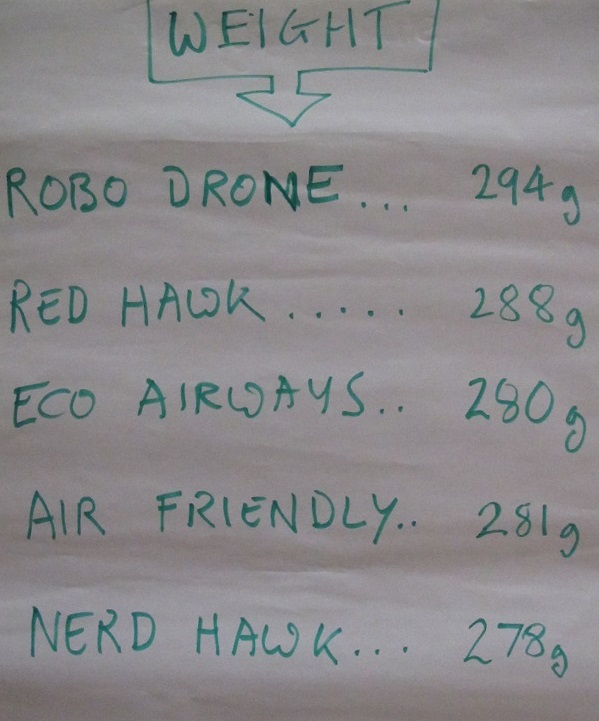 WEIGHT
ROBO DRONE... 294g
RED HAWK..... 288g
ECO AIRWAYS.. 280g
AIR FRIENDLY.. 281g
NERD HAWK... 278g